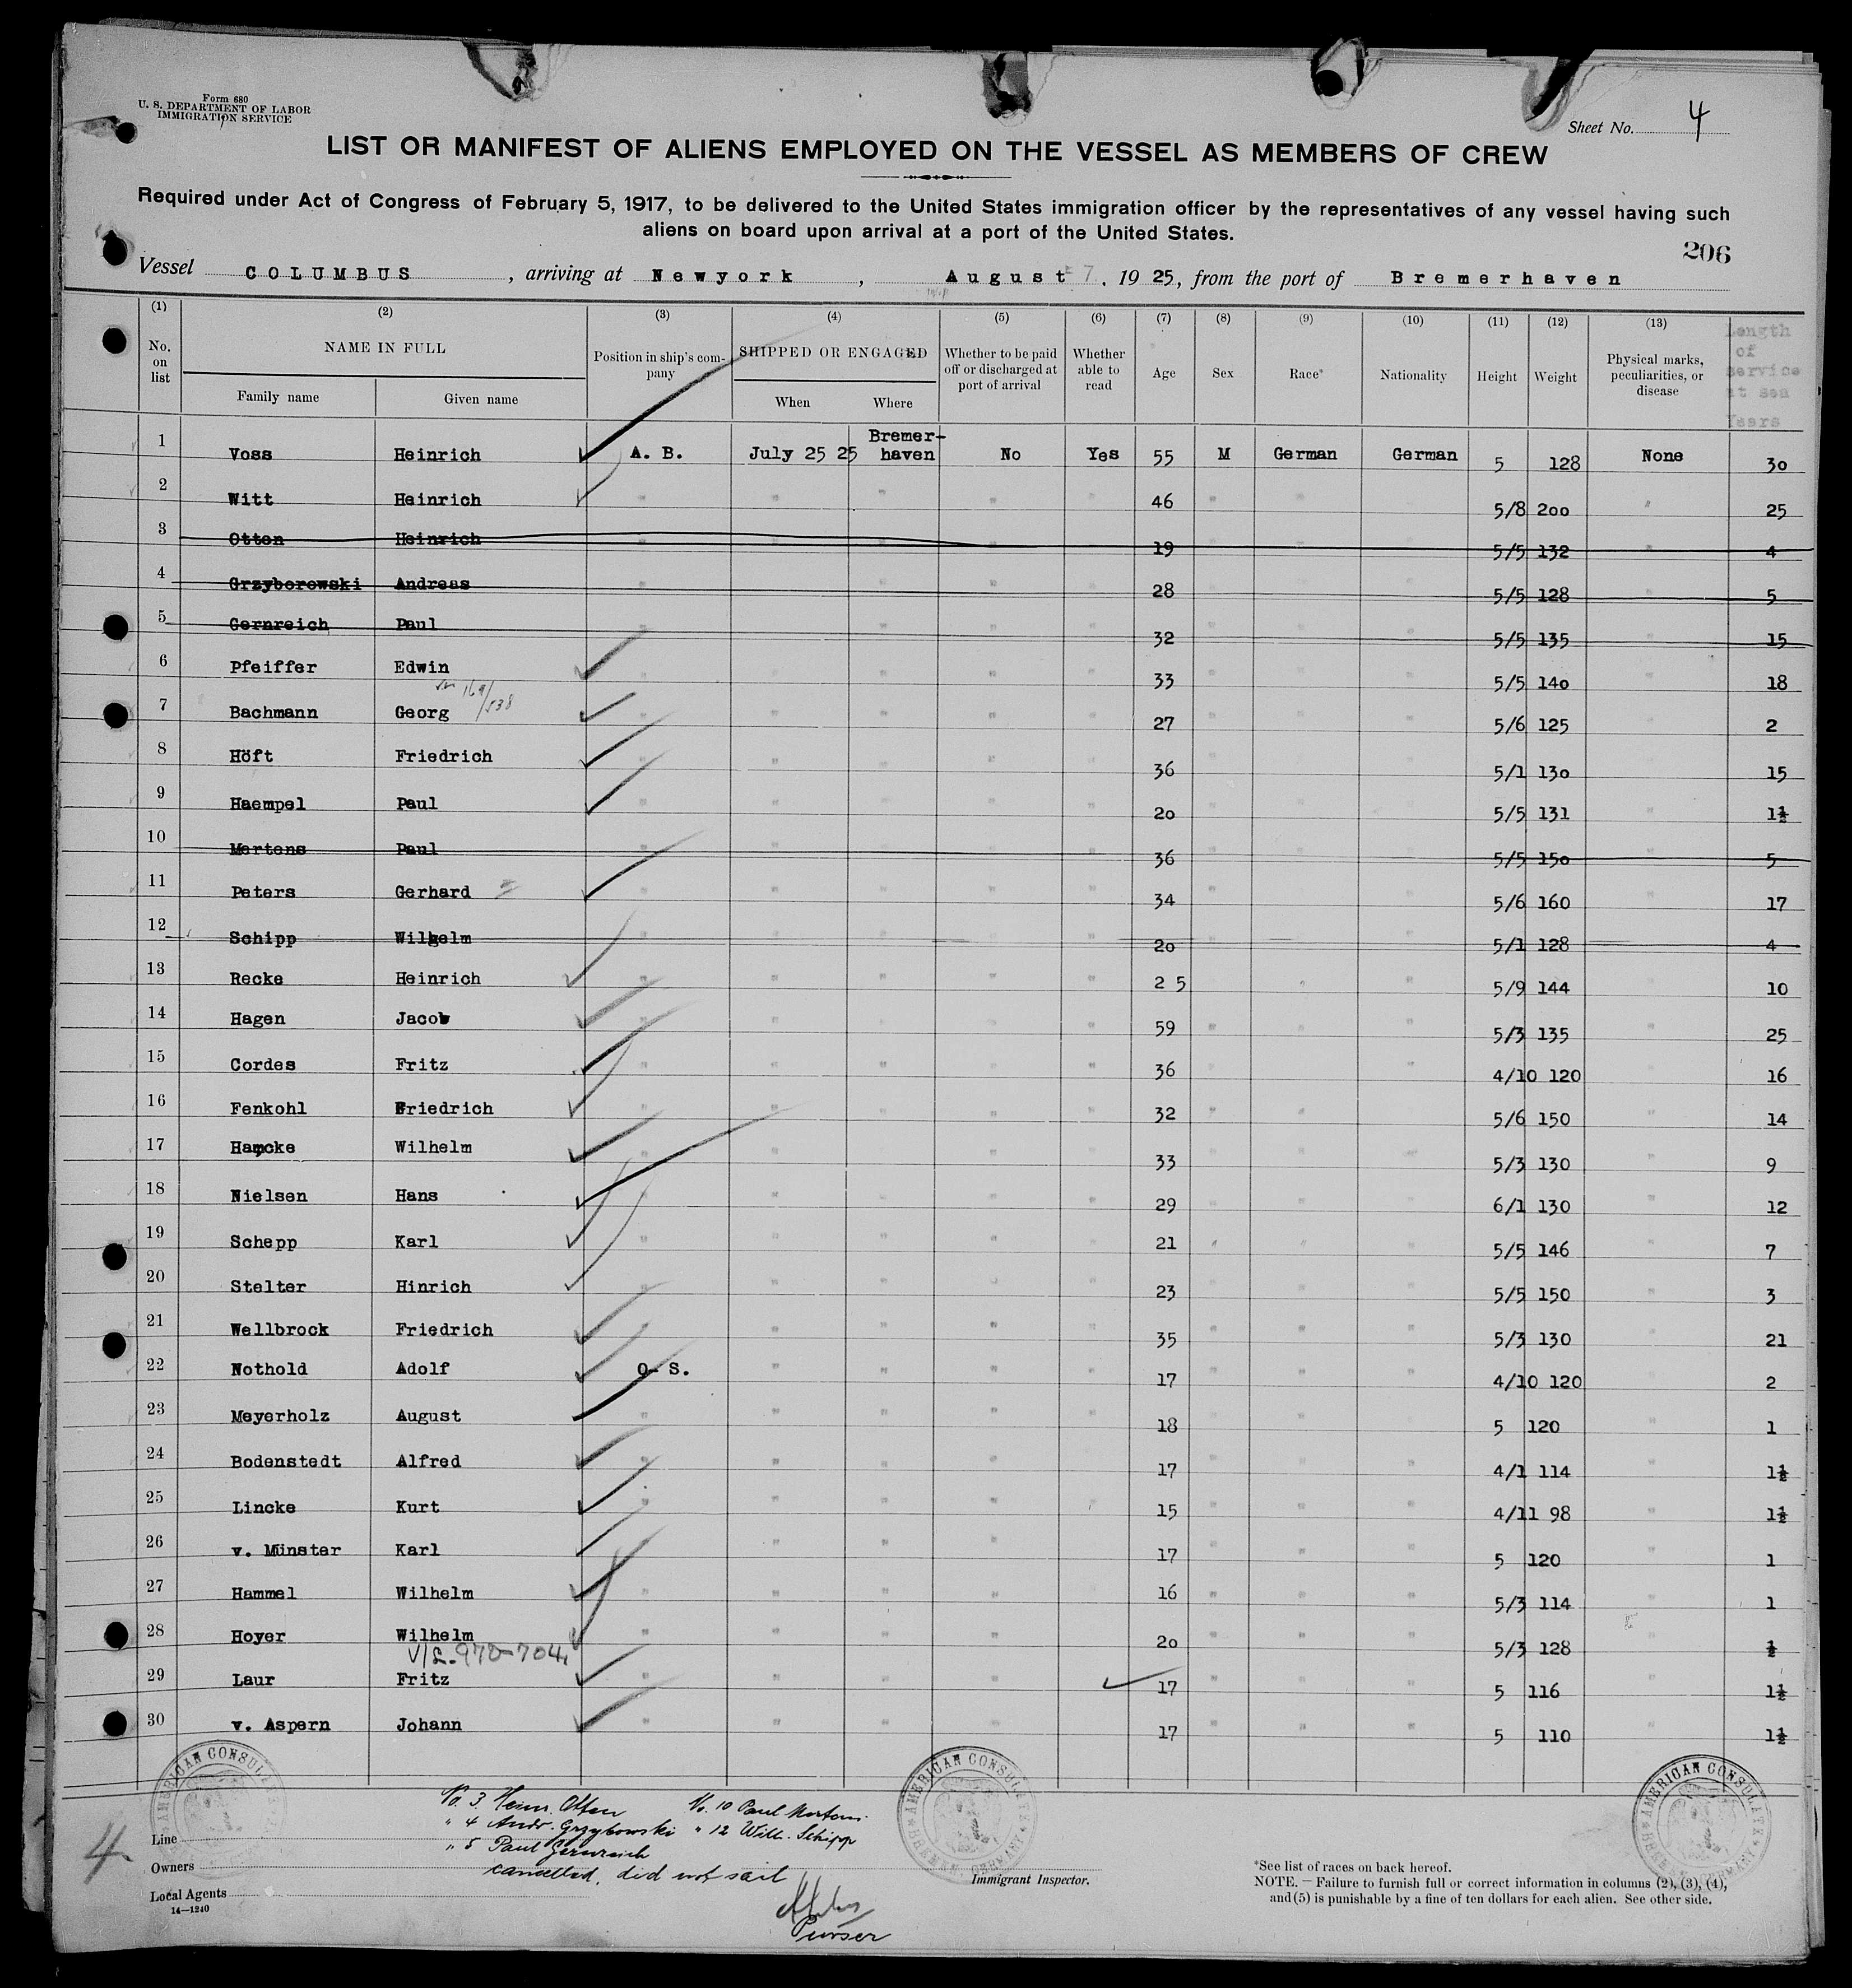 Form 680
U. S. DEPARTMENT OF LABOR
IMMIGRATION SERVICE
Sheet No. 4
LIST OR MANIFEST OF ALIENS EMPLOYED ON THE VESSEL AS MEMBERS OF CREW
Required under Act of Congress of February 5, 1917, to be delivered to the United States immigration officer by the representatives of any vessel having such
aliens on board upon arrival at a port of the United States.
206
Vessel COLUMBUS, arriving at Newyork, August 7, 1925, from the port of Bremerhaven
(1) (2) (3) (4) (5) (6) (7) (8) (9) (10) (11) (12) (13)
No. on list
NAME IN FULL
Family name Given name
Position in ship's company
SHIPPED OR ENGAGED
When Where
Whether to be paid off or discharged at port of arrival
Whether able to read
Age Sex Race* Nationality Height Weight
Physical marks, peculiarities, or disease
Length of service at sea Years
1 Voss Heinrich A. B. July 25 25 Bremerhaven No Yes 55 M German German 5 128 None 30
2 Witt Heinrich " " " " " 46 " " " 5/8 200 " 25
3 Otten Heinrich " " " " " 19 " " " 5/5 132 " 4
4 Grzyborowski Andreas " " " " 28 " " " 5/5 128 " 5
5 Gernreich Paul " " " " 32 " " " 5/5 135 " 15
6 Pfeiffer Edwin " " " " " 33 " " " 5/5 140 " 18
169/538
7 Bachmann Georg " " " " " 27 " " " 5/6 125 " 2
8 Höft Friedrich " " " " " 36 " " " 5/1 130 " 15
9 Haempel Paul " " " " " 20 " " " 5/5 131 " 1½
10 Mertens Paul " " " " " 36 " " " 5/5 150 " 5
11 Peters Gerhard " " " " " 34 " " " 5/6 160 " 17
12 Schipp Wilhelm " " " " " 20 " " " 5/1 128 " 4
13 Recke Heinrich " " " " " 2 5 " " 5/9 144 " 10
14 Hagen Jacob " " " " " 59 " " " 5/3 135 " 25
15 Cordes Fritz " " " " " 36 " " " 4/10 120 " 16
16 Fenkohl Friedrich " " " " " 32 " " " 5/6 150 " 14
17 Hamcke Wilhelm " " " " " 33 " " " 5/3 130 " 9
18 Nielsen Hans " " " " " 29 " " " 6/1 130 " 12
19 Schepp Karl " " " " " 21 " " " 5/5 146 " 7
20 Stelter Hinrich " " " " " 23 " " " 5/5 150 " 3
21 Wellbrock Friedrich " " " " " 35 " " " 5/3 130 " 21
22 Nothold Adolf O- S. " " " " 17 " " " 4/10 120 " 2
23 Meyerholz August " " " " " 18 " " " 5 120 " 1
24 Bodenstedt Alfred " " " " " 17 " " " 4/1 114 " 1½
25 Lincke Kurt " " " " " 15 " " " 4/11 98 " 1½
26 v. Münster Karl " " " " 17 " " " 5 120 " 1
27 Hammel Wilhelm " " " " " 16 " " " 5/3 114 " 1
28 Hoyer Wilhelm " " " " " 20 " " " 5/3 128 " ½
V/L. 970-704
29 Laur Fritz " " " " 17 " " " 5 116 " 1½
30 v. Aspern Johann " " " " " 17 " " " 5 110 " 1½
AMERICAN CONSULATE
AMERICAN CONSULATE BREMEN GERMANY
AMERICAN CONSULATE BREMEN GERMANY
No. 3. Heinr. Otten No. 10 Paul Mertens
" 4 Andr. Grzybowski " 12 Wilh. Schipp
" 5 Paul Gernreich
cancelled, did not sail
Purser
4.
Line
Owners
Local Agents
14—1240
Immigrant Inspector.
*See list of races on back hereof.
NOTE. — Failure to furnish full or correct information in columns (2), (3), (4),
and (5) is punishable by a fine of ten dollars for each alien. See other side.